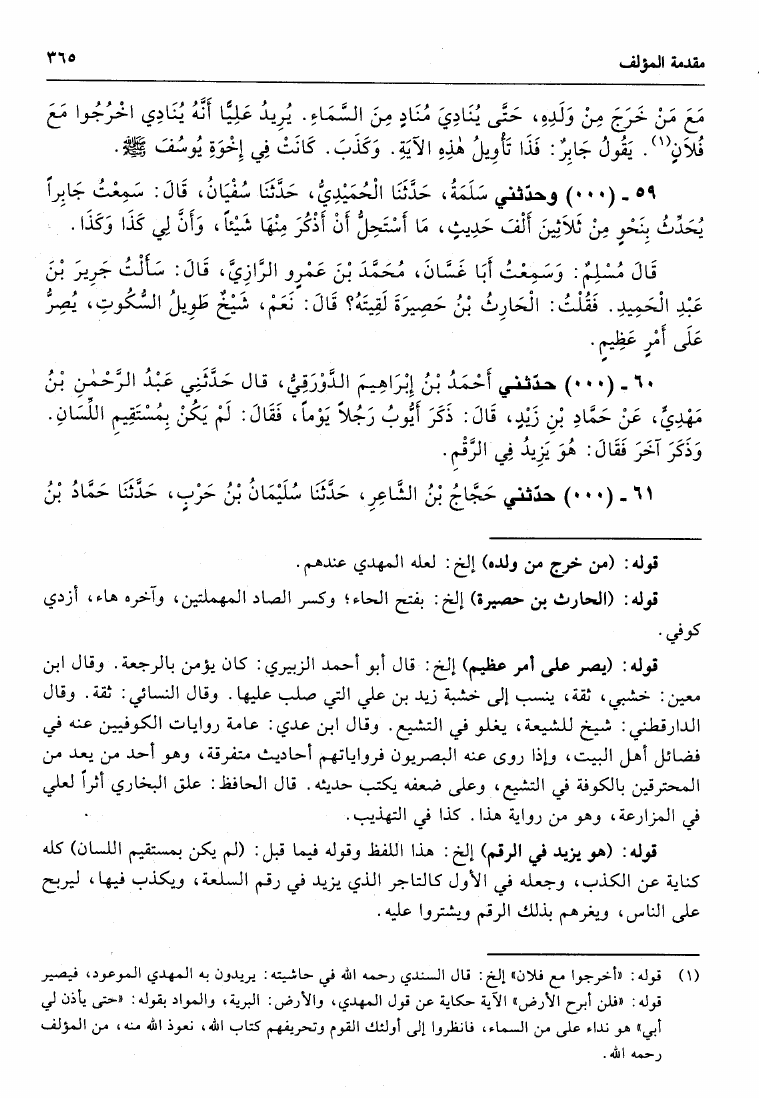 مقدمة المؤلف
٣٦٥
مَعَ مَنْ خَرَجَ مِنْ وَلَدِهِ، حَتَّى يُنَادِيَ مُنَادٍ مِنَ السَّمَاءِ. يُرِيدُ عَلِيًّا أَنَّهُ يُنَادِي اخْرُجُوا مَعَ
فُلَانٍ(١). يَقُولُ جَابِرٌ: فَذَا تَأْوِيلُ هٰذِهِ الآيَةِ. وَكَذَبَ. كَانَتْ فِي إِخْوَةِ يُوسُفَ ﷺ.
٥٩ ـ (٠٠٠) وحدّثني سَلَمَةُ، حَدَّثَنَا الْحُمَيْدِيُّ، حَدَّثَنَا سُفْيَانُ، قَالَ: سَمِعْتُ جَابِراً
يُحَدِّثُ بِنَحْوٍ مِنْ ثَلَاثِينَ أَلْفَ حَدِيثٍ، مَا أَسْتَحِلُّ أَنْ أَذْكُرَ مِنْهَا شَيْئاً، وَأَنَّ لِي كَذَا وَكَذَا.
قَالَ مُسْلِمٌ: وَسَمِعْتُ أَبَا غَسَّانَ، مُحَمَّدَ بْنَ عَمْرٍو الرَّازِيَّ، قَالَ: سَأَلْتُ جَرِيرَ بْنَ
عَبْدِ الْحَمِيدِ. فَقُلْتُ: الْحَارِثُ بْنُ حَصِيرَةَ لَقِيتَهُ؟ قَالَ: نَعَمْ، شَيْخٌ طَوِيلُ السُّكُوتِ، يُصِرُّ
عَلَى أَمْرٍ عَظِيمٍ.
٦٠ ـ (٠٠٠) حدّثني أَحْمَدُ بْنُ إِبْرَاهِيمَ الدَّوْرَقِيُّ، قال حَدَّثَنِي عَبْدُ الرَّحْمٰنِ بْنُ
مَهْدِيٍّ، عَنْ حَمَّادِ بْنِ زَيْدٍ، قَالَ: ذَكَرَ أَيُّوبُ رَجُلاً يَوْماً، فَقَالَ: لَمْ يَكُنْ بِمُسْتَقِيمِ اللِّسَانِ.
وَذَكَرَ آخَرَ فَقَالَ: هُوَ يَزِيدُ فِي الرَّقْمِ.
٦١ ـ (٠٠٠) حدّثني حَجَّاجُ بْنُ الشَّاعِرِ، حَدَّثَنَا سُلَيْمَانُ بْنُ حَرْبٍ، حَدَّثَنَا حَمَّادُ بْنُ
قوله: (من خرج من ولده) إلخ: لعله المهدي عندهم.
قوله: (الحارث بن حصيرة) إلخ: بفتح الحاء؛ وكسر الصاد المهملتين، وآخره هاء، أزدي
كوفي.
قوله: (يصر على أمر عظيم) إلخ: قال أبو أحمد الزبيري: كان يؤمن بالرجعة. وقال ابن
معين: خشبي، ثقة، ينسب إلى خشبة زيد بن علي التي صلب عليها. وقال النسائي: ثقة. وقال
الدارقطني: شيخ للشيعة، يغلو في التشيع. وقال ابن عدي: عامة روايات الكوفيين عنه في
فضائل أهل البيت، وإذا روى عنه البصريون فرواياتهم أحاديث متفرقة، وهو أحد من يعد من
المحترقين بالكوفة في التشيع، وعلى ضعفه يكتب حديثه. قال الحافظ: علق البخاري أثراً لعلي
في المزارعة، وهو من رواية هذا. كذا في التهذيب.
قوله: (هو يزيد في الرقم) إلخ: هذا اللفظ وقوله فيما قبل: (لم يكن بمستقيم اللسان) كله
كناية عن الكذب، وجعله في الأول كالتاجر الذي يزيد في رقم السلعة، ويكذب فيها، ليربح
على الناس، ويغرهم بذلك الرقم ويشتروا عليه.
(١) قوله: «أخرجوا مع فلان» إلخ: قال السندي رحمه الله في حاشيته: يريدون به المهدي الموعود، فيصير
قوله: «فلن أبرح الأرض» الآية حكاية عن قول المهدي، والأرض: البرية، والمواد بقوله: «حتى يأذن لي
أبي» هو نداء على من السماء، فانظروا إلى أولئك القوم وتحريفهم كتاب الله، نعوذ الله منه، من المؤلف
رحمه الله.